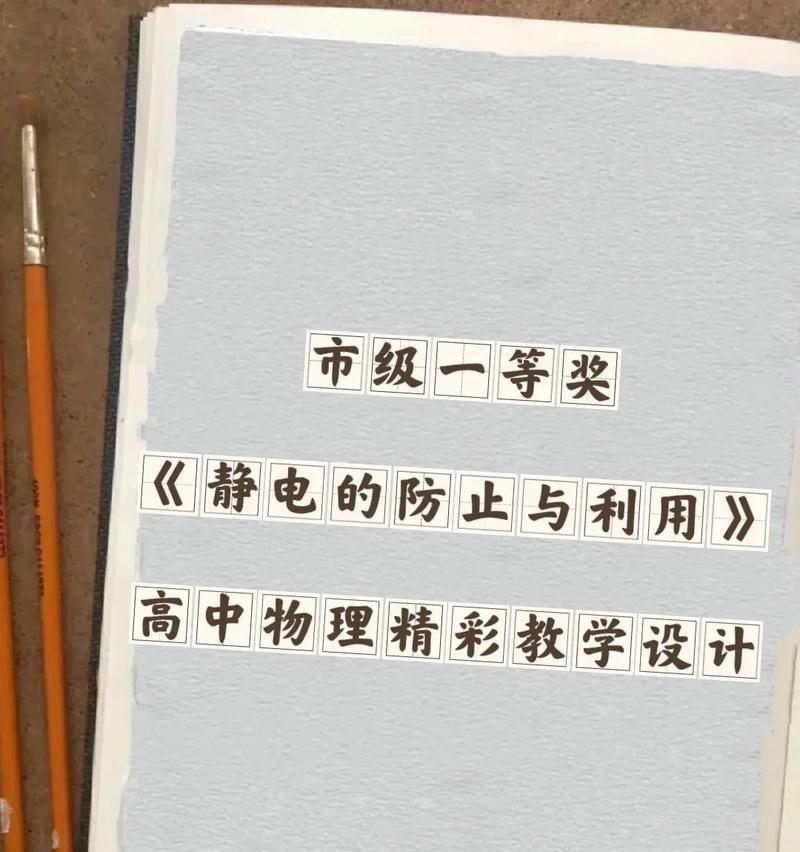 市级一等奖
《静电的防止与利用》
高中物理精彩教学设计